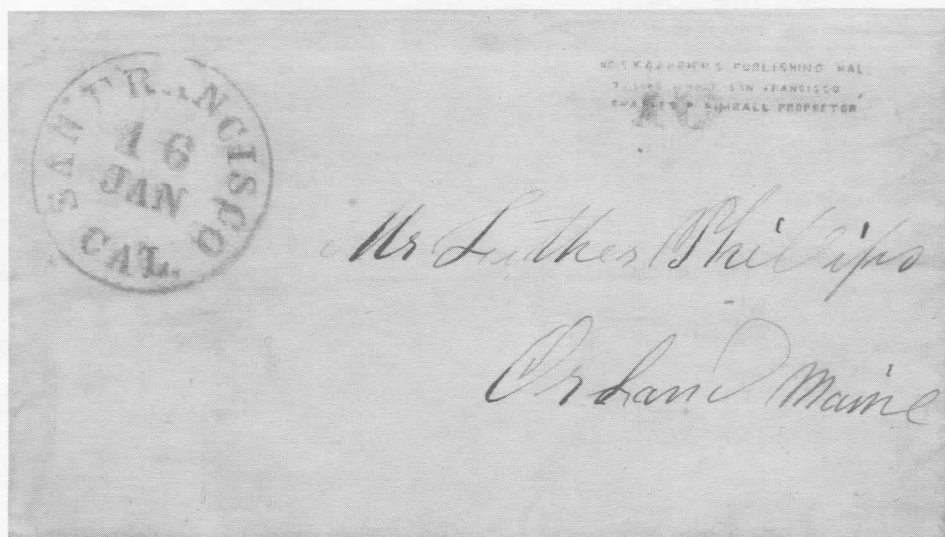 SAN FRANCISCO
16
JAN
CAL.
CARRIER'S PUBLISHING HAL
SAN FRANCISCO
KIMBALL PROPRETOR
Mr Luther Phillips
Orland Maine